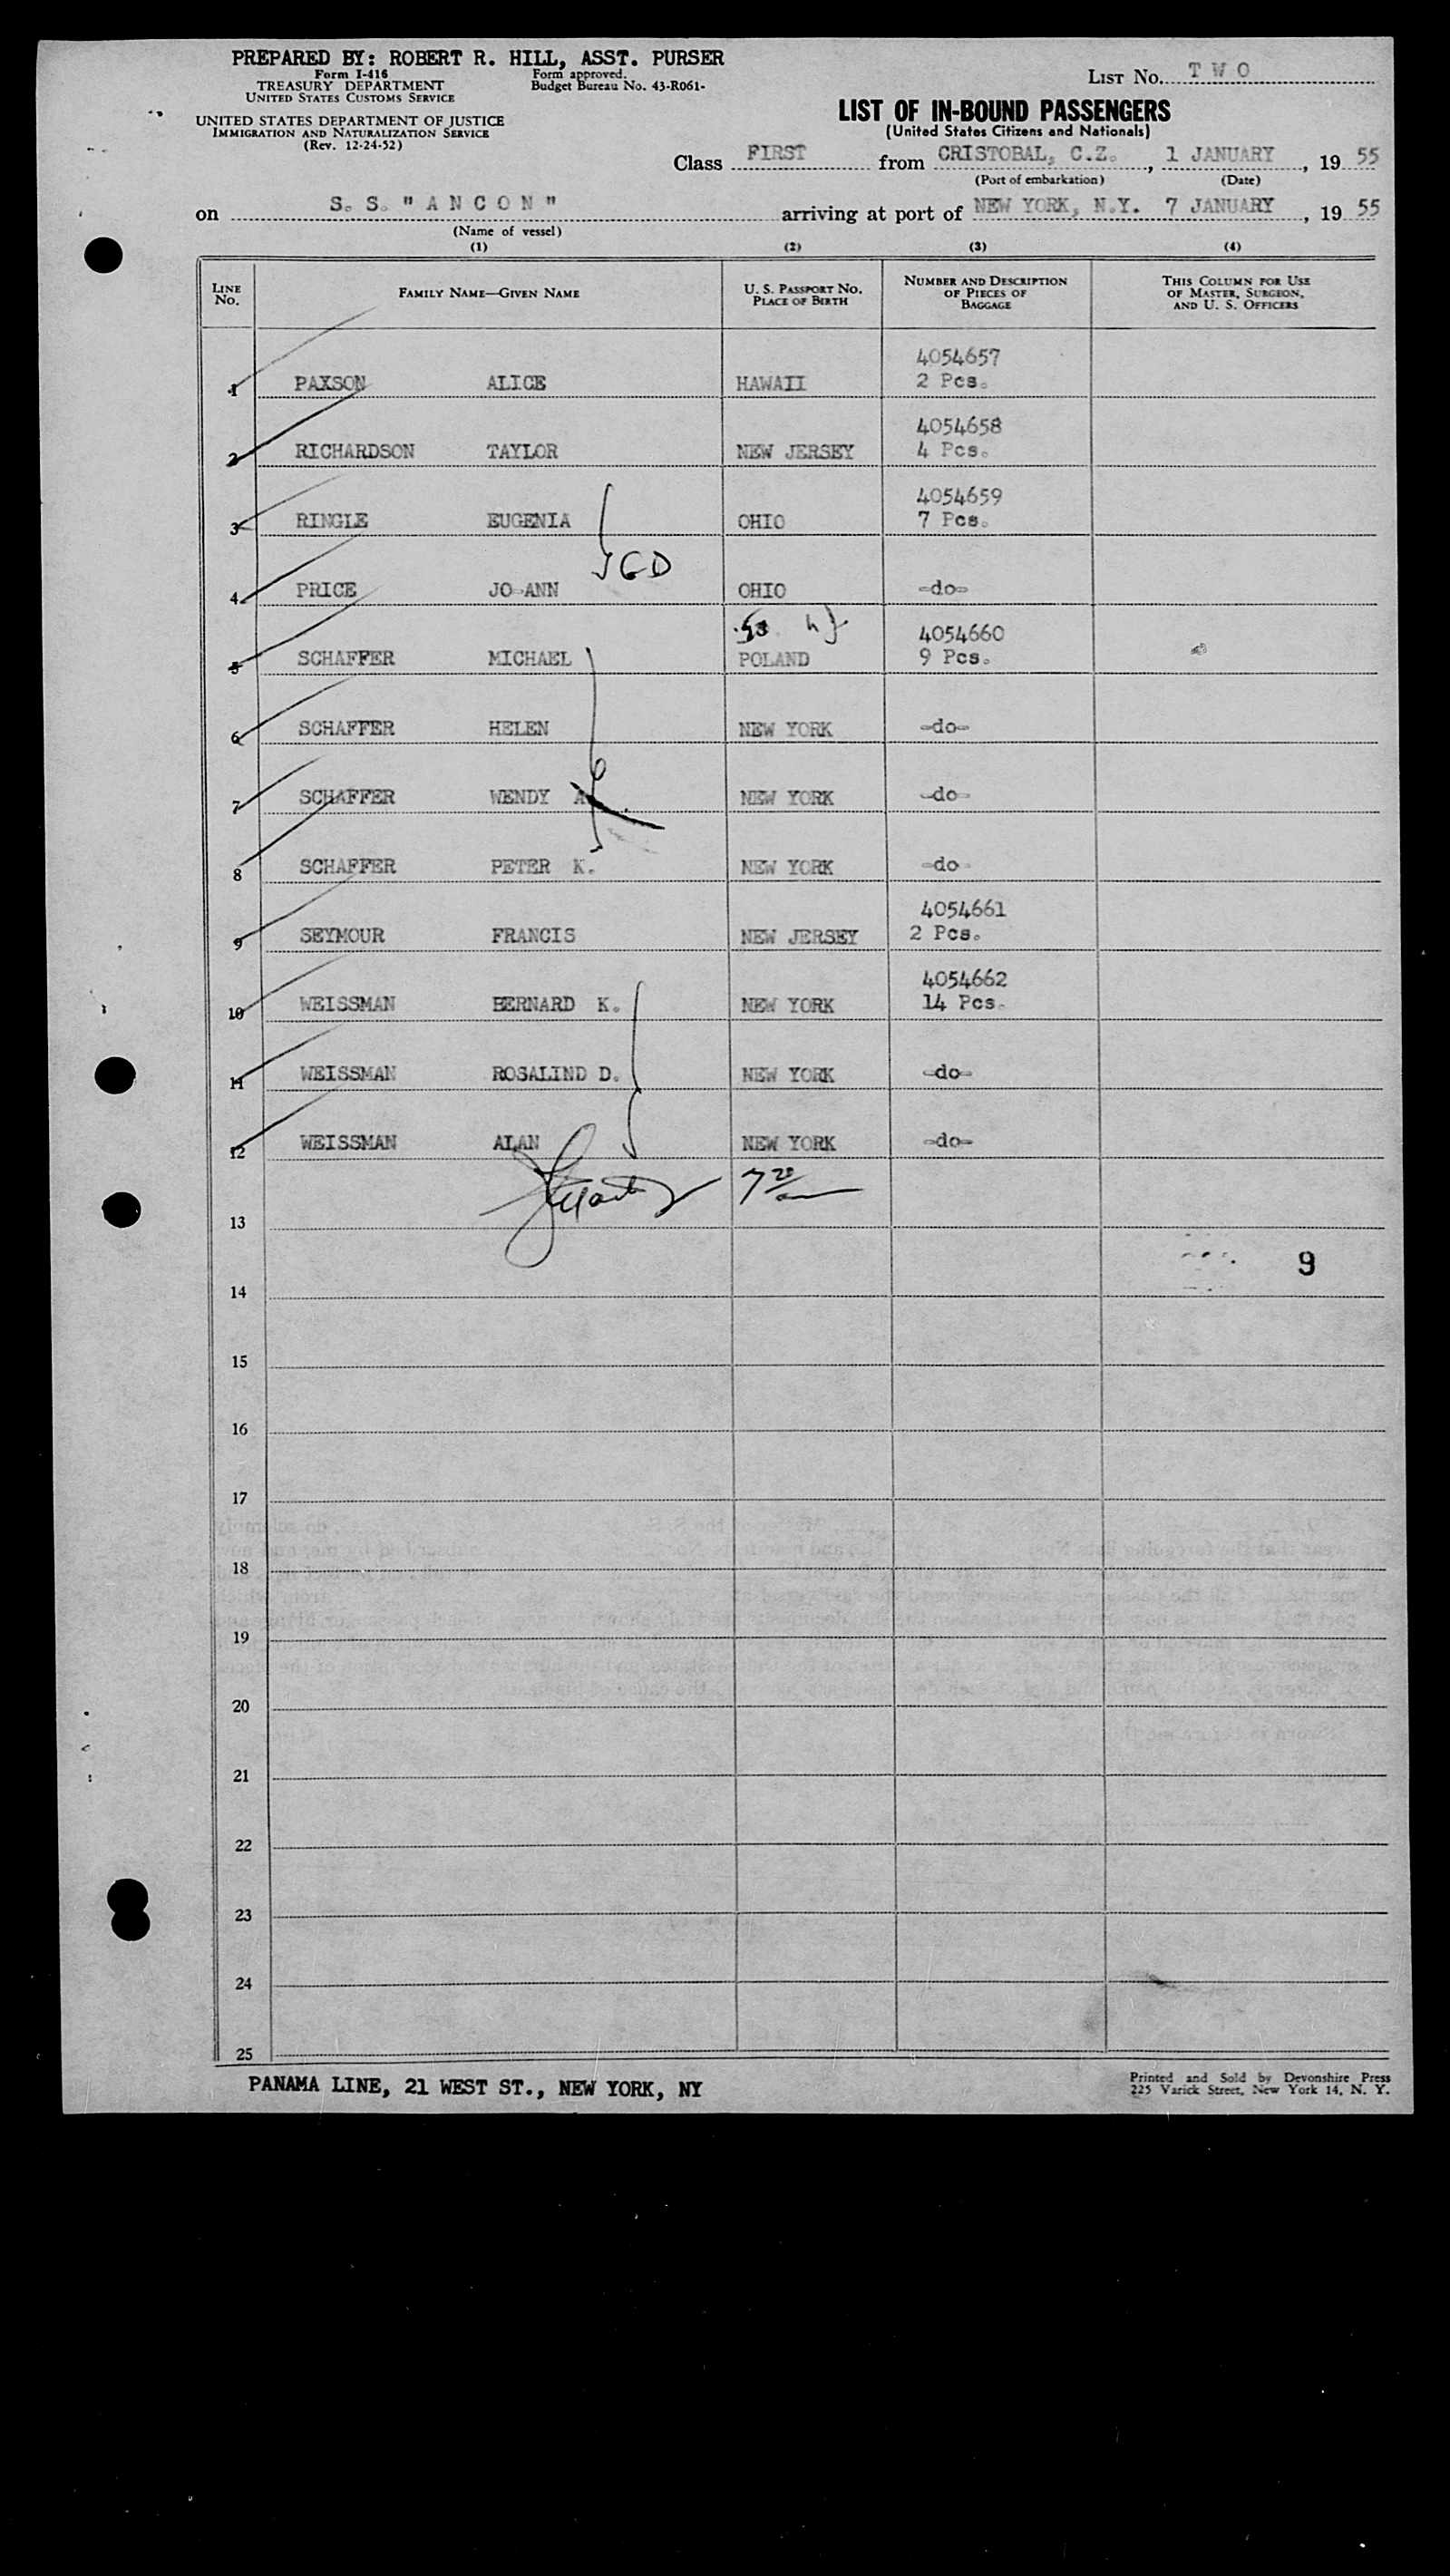 PREPARED BY: ROBERT R. HILL, ASST. PURSER
Form I-416
TREASURY DEPARTMENT
UNITED STATES CUSTOMS SERVICE
Form approved.
Budget Bureau No. 43-R061-
LIST No. T W O
UNITED STATES DEPARTMENT OF JUSTICE
IMMIGRATION AND NATURALIZATION SERVICE
(Rev. 12-24-52)
LIST OF IN-BOUND PASSENGERS
(United States Citizens and Nationals)
Class FIRST from CRISTOBAL, C.Z., 1 JANUARY, 19 55
(Port of embarkation) (Date)
on S. S. "A N C O N" arriving at port of NEW YORK, N.Y. 7 JANUARY, 19 55
(Name of vessel)
(1) (2) (3) (4)
LINE No. FAMILY NAME—GIVEN NAME U. S. PASSPORT No. PLACE OF BIRTH NUMBER AND DESCRIPTION OF PIECES OF BAGGAGE THIS COLUMN FOR USE OF MASTER, SURGEON, AND U. S. OFFICERS
4054657
1 PAXSON ALICE HAWAII 2 Pcs.
4054658
2 RICHARDSON TAYLOR NEW JERSEY 4 Pcs.
4054659
3 RINGLE EUGENIA OHIO 7 Pcs.
4 PRICE JO-ANN OHIO -do-
4054660
5 SCHAFFER MICHAEL POLAND 9 Pcs.
6 SCHAFFER HELEN NEW YORK -do-
7 SCHAFFER WENDY NEW YORK -do-
8 SCHAFFER PETER K. NEW YORK -do-
4054661
9 SEYMOUR FRANCIS NEW JERSEY 2 Pcs.
4054662
10 WEISSMAN BERNARD K. NEW YORK 14 Pcs.
11 WEISSMAN ROSALIND D. NEW YORK -do-
12 WEISSMAN ALAN NEW YORK -do-
13
9
14
15
16
17
18
19
20
21
22
23
24
25
PANAMA LINE, 21 WEST ST., NEW YORK, NY
Printed and Sold by Devonshire Press
225 Varick Street, New York 14, N. Y.